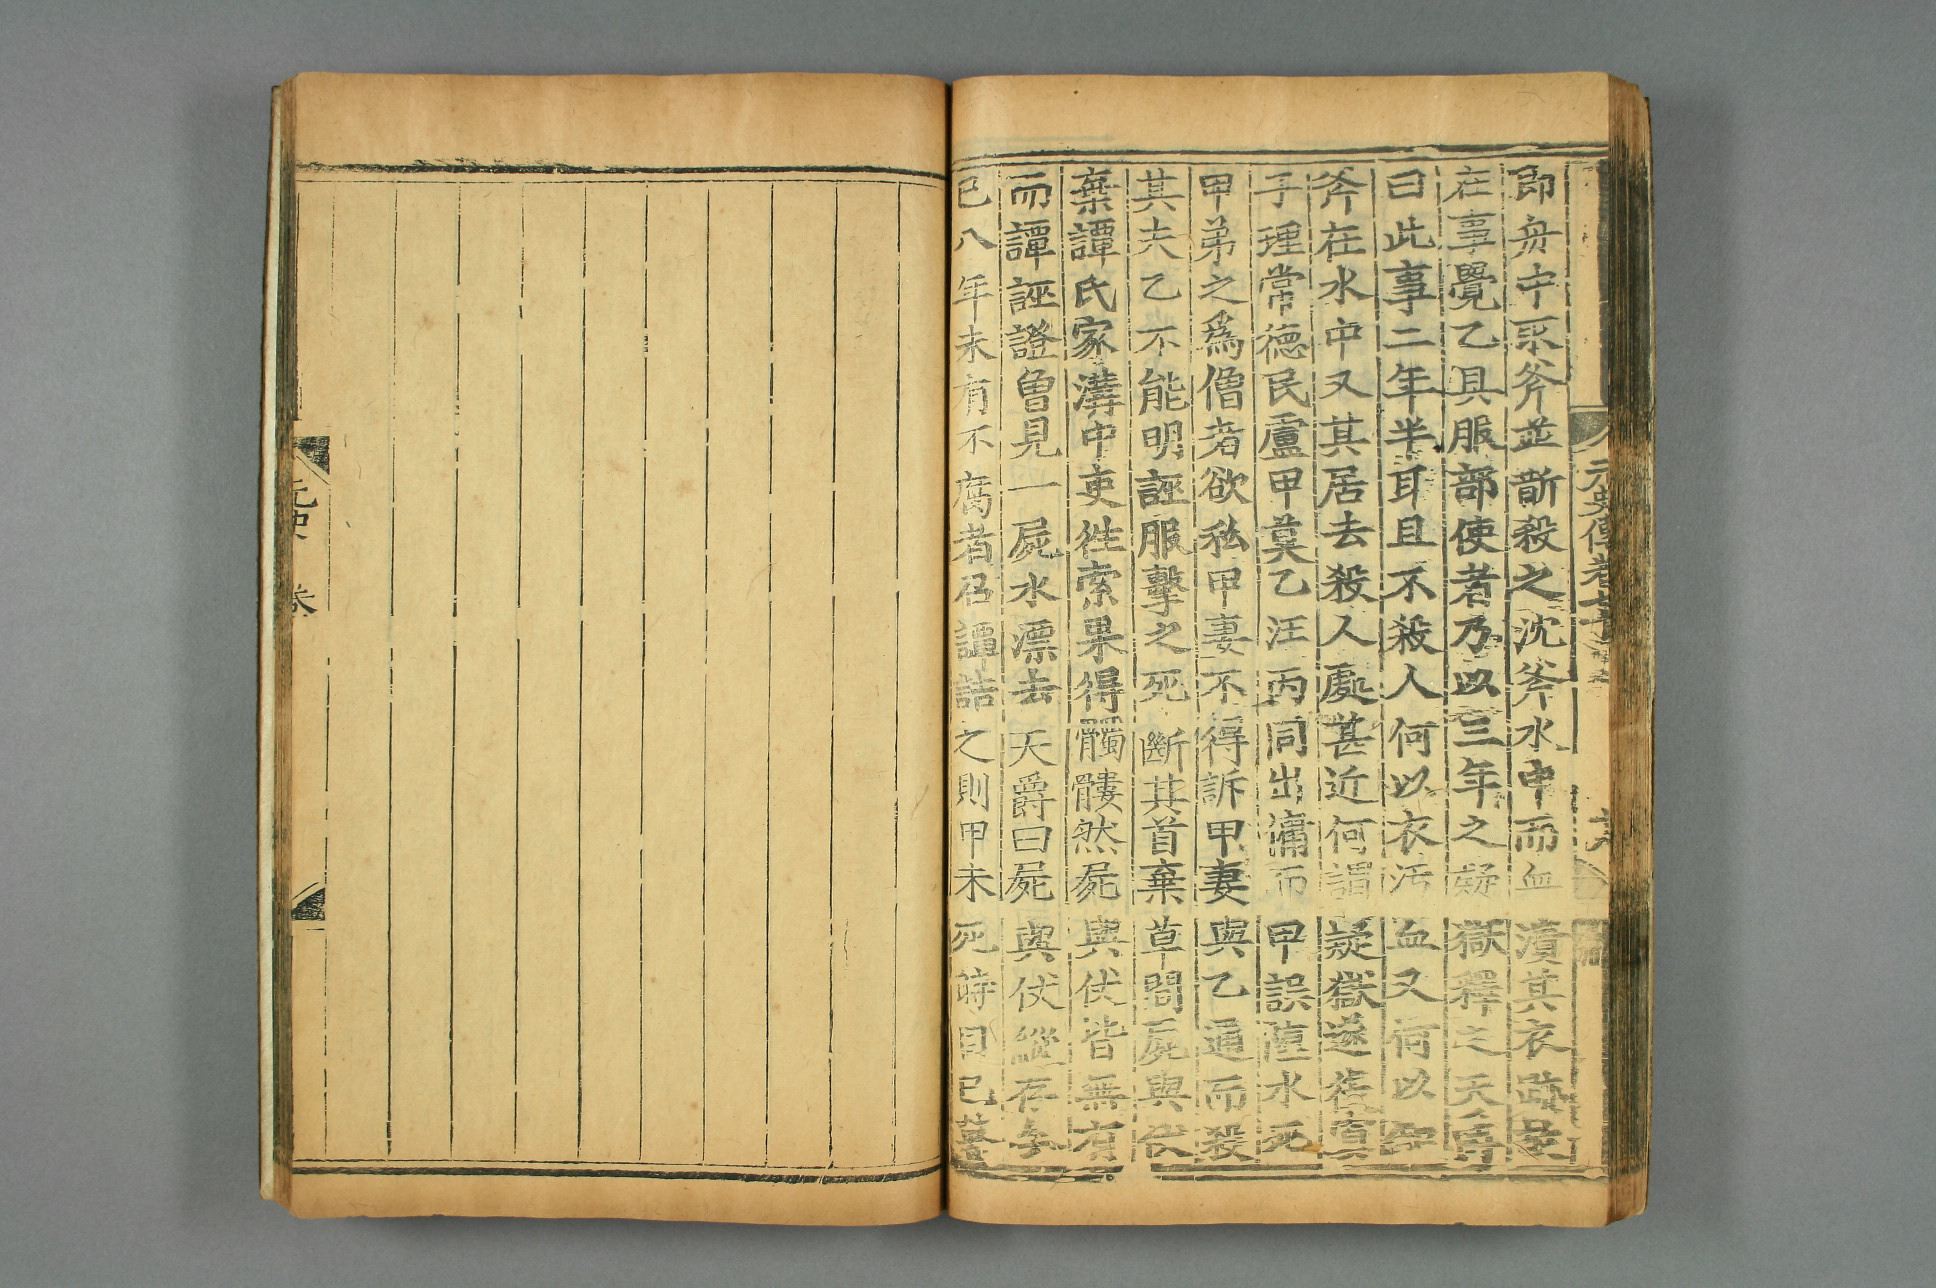 元史傳卷七十
即舟中取斧並斮殺之沈斧水中而血漬其衣跡
在事覺乙具服部使者乃以三年之疑獄釋之天爵
曰此事二年半耳且不殺人何以衣污血又何以知
斧在水中又其居去殺人處甚近何謂疑獄遂復寘
于理常德民盧甲莫乙汪丙同出傭而甲誤墮水死
甲弟之為僧者欲私甲妻不得訴甲妻與乙通而殺
其夫乙不能明誣服擊之死斷其首棄草間屍與仗
棄譚氏家溝中吏徃索果得髑髏然屍與仗皆無有
而譚誣證曾見一屍水漂去天爵曰屍與仗縱存今
已八年未有不腐者召譚詰之則甲未死時目已瞽
元史 卷